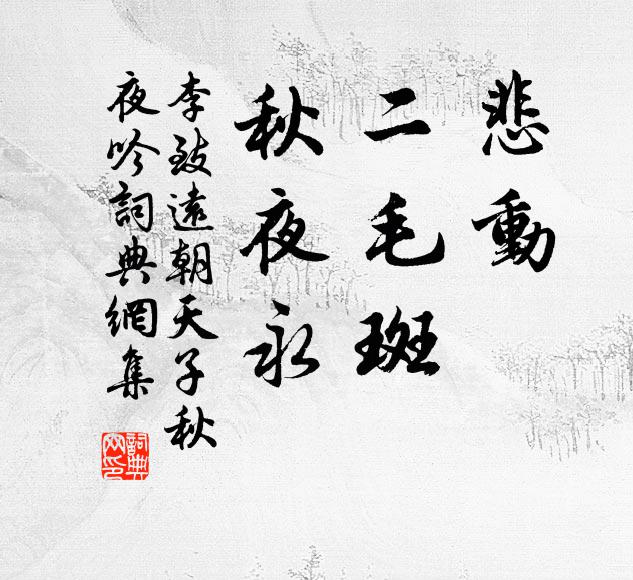 悲動
二毛斑
秋夜永
李致遠朝天子秋
夜吟詞典網集
詞典網印